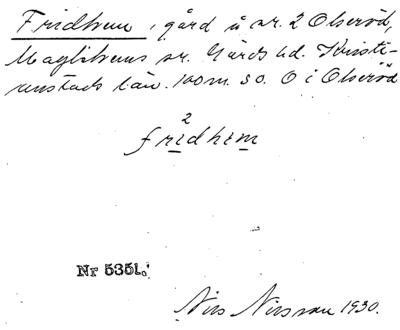 Fridhem, gård å nr. 2 Olseröd,
Maglehems sn. Gärds hd. Kristi-
anstads län. 100 m. SO. O i Olseröd
2
fridhem
Nr 5351.
Nils Nilsson 1930.